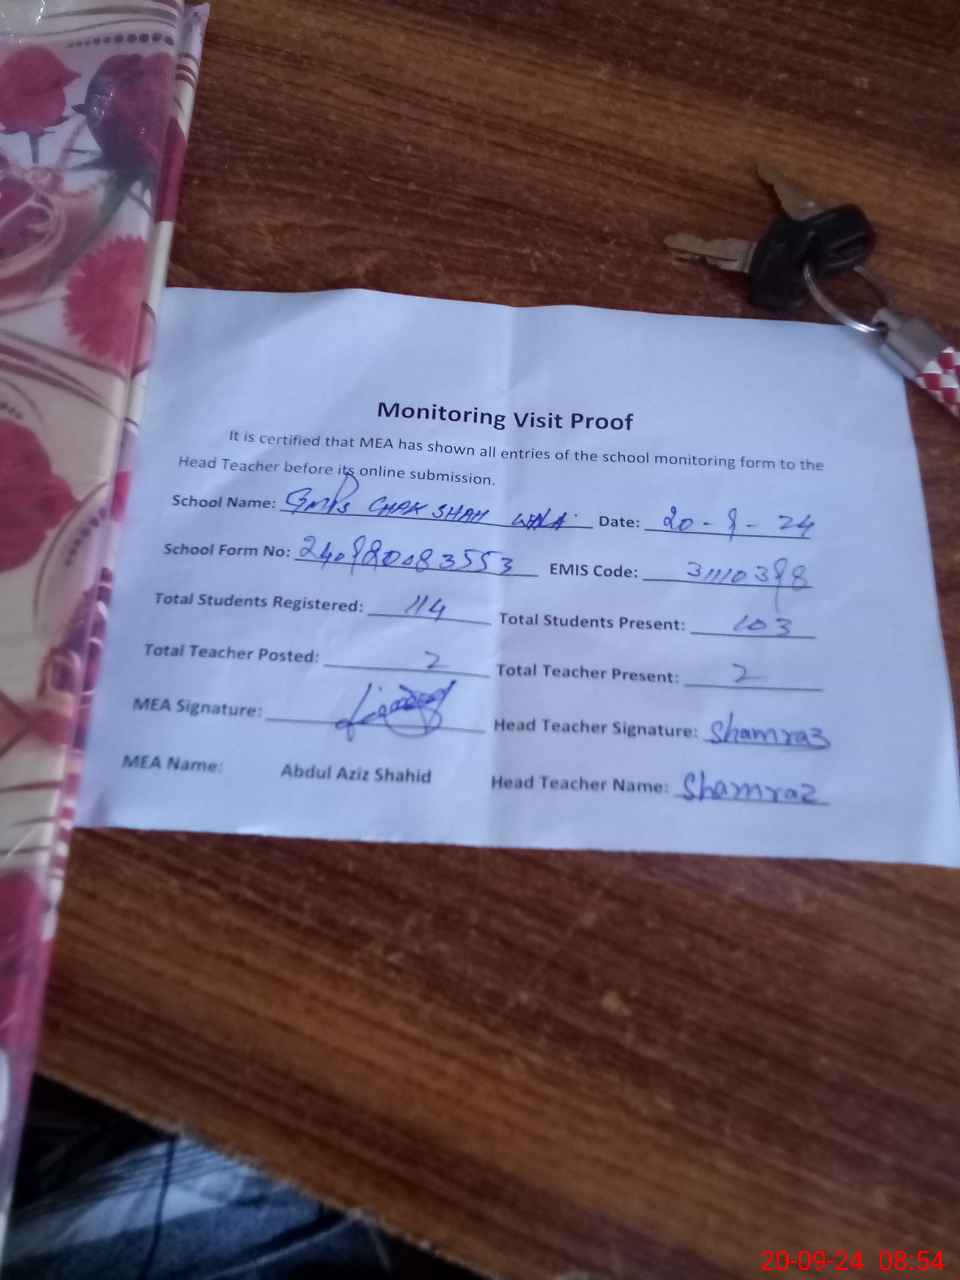 Monitoring Visit Proof
It is certified that MEA has shown all entries of the school monitoring form to the
Head Teacher before its online submission.
School Name: GMPS CHAK SHAH Date: 20-9-24
School Form No: 240920083553 EMIS Code: 31110398
Total Students Registered: 114 Total Students Present: 103
Total Teacher Posted: 2 Total Teacher Present: 2
MEA Signature: Head Teacher Signature: Shamraz
MEA Name: Abdul Aziz Shahid Head Teacher Name: Shamraz
20-09-24 08:54